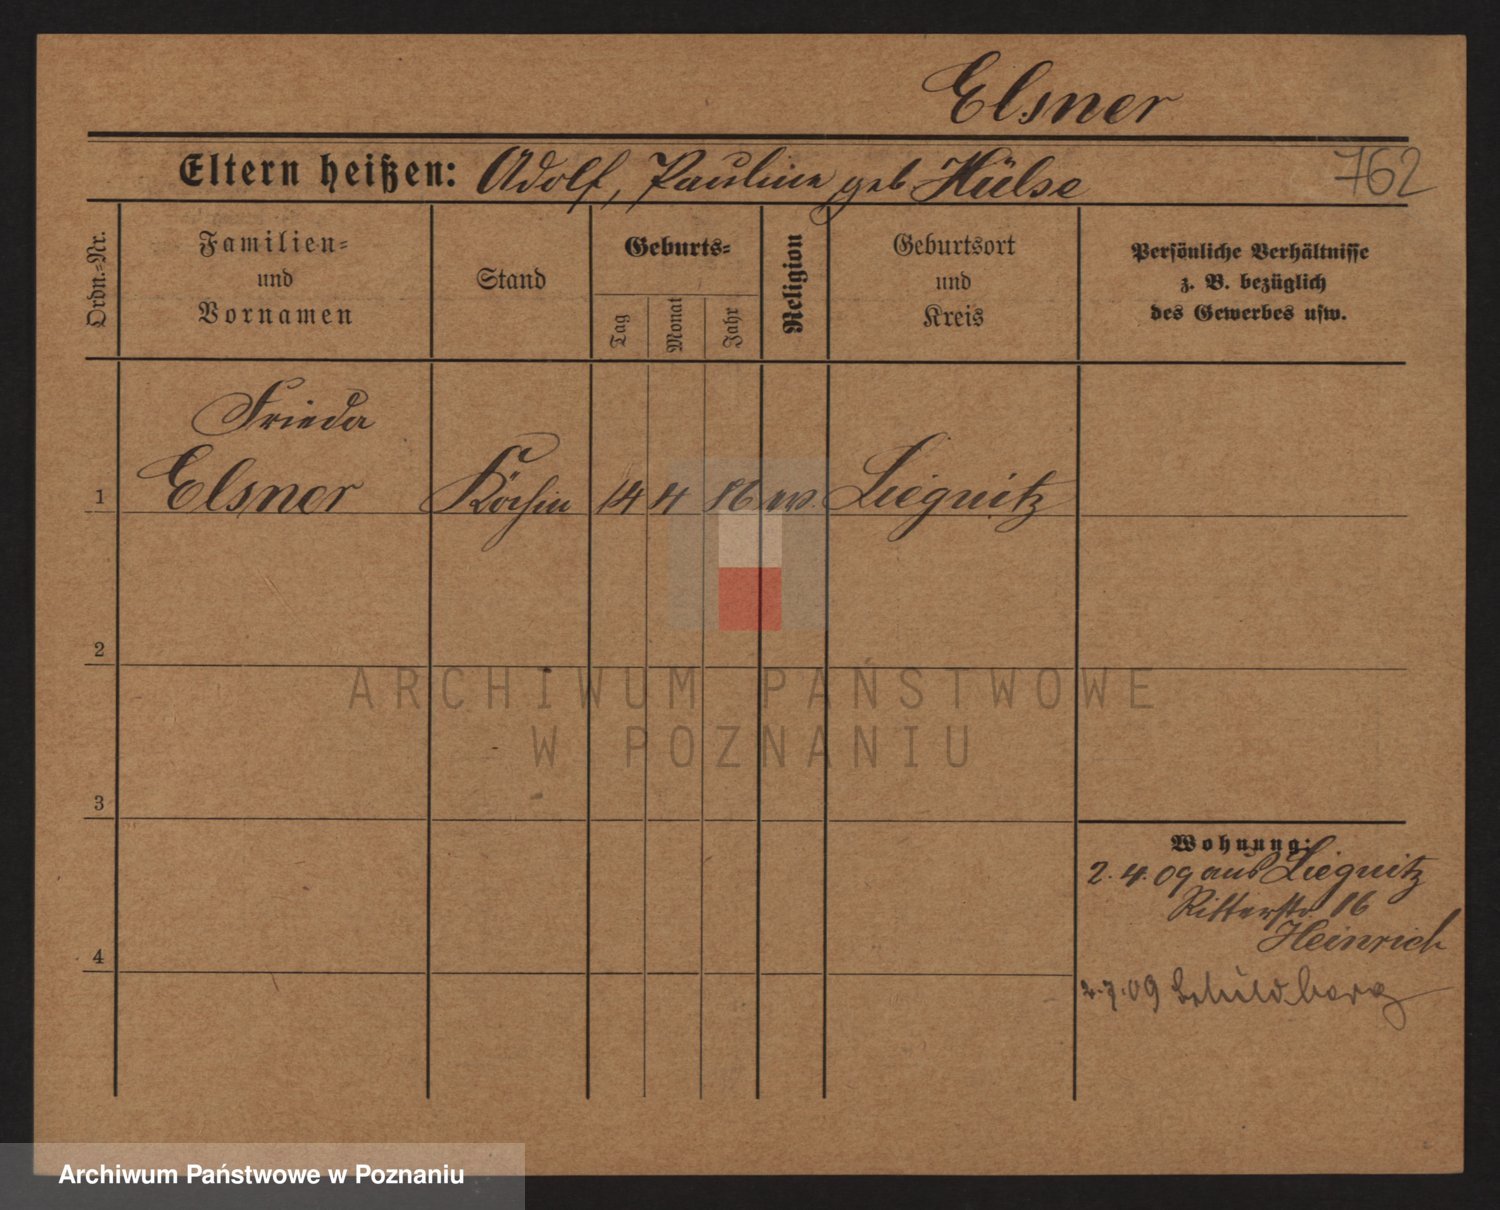 Elsner
Eltern heißen: Adolf, Pauline geb Hülse
762
Ordn.=Nr.
Familien=
und
Vornamen
Stand
Geburts=
Tag
Monat
Jahr
Religion
Geburtsort
und
Kreis
Persönliche Verhältnisse
z. B. bezüglich
des Gewerbes usw.
Frieda
1 Elsner Köchin 14 4 86 ev. Liegnitz
2
ARCHIWUM PAŃSTWOWE
W POZNANIU
3
Wohnung:
2. 4. 09 aus Liegnitz
Ritterstr. 16
Heinrich
4
2.7.09 Schildberg
Archiwum Państwowe w Poznaniu